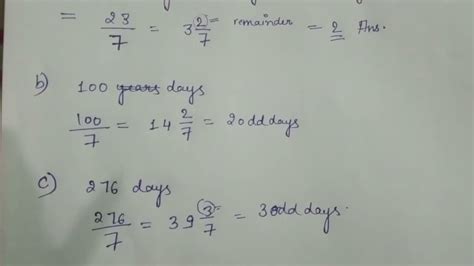 = 23/7 = 3 2/7 = remainder = 2 Ans.
b) 100 years days
100/7 = 14 2/7 = 2 odd days
c) 276 days
276/7 = 39 3/7 = 3 odd days.